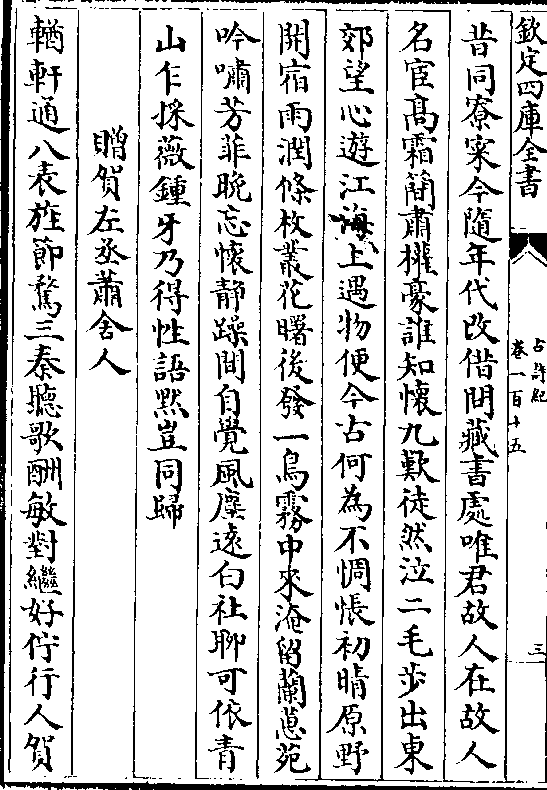 欽定四庫全書
古詩紀
卷一百十五
三
昔同寮寀今隨年代改借問藏書處唯君故人在故人
名宦髙霜簡肅權豪誰知懷九歎徒然泣二毛步出東
郊望心遊江海上遇物便今古何為不惆悵初晴原野
開宿雨潤條枚叢花曙後發一鳥霧中來淹留蘭蕙苑
吟嘯芳菲晚忘懷静躁間自覺風塵遠白社聊可依青
山乍採薇鍾牙乃得性語黙豈同歸
贈賀左丞蕭舍人
輶軒通八表旌節騖三秦聽歌酬敏對繼好佇行人賀